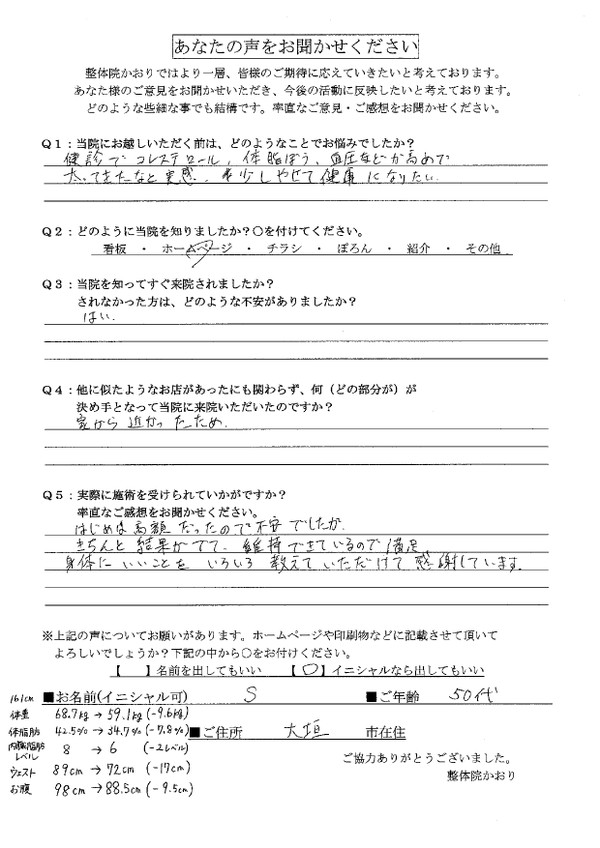 あなたの声をお聞かせください
整体院かおりではより一層、皆様のご期待に応えていきたいと考えております。
あなた様のご意見をお聞かせいただき、今後の活動に反映したいと考えております。
どのような些細な事でも結構です。率直なご意見・ご感想をお聞かせください。
Q1：当院にお越しいただく前は、どのようなことでお悩みでしたか？
健診でコレステロール、体脂ぼう、血圧などが高めで
太ってきたなと実感。少しやせて健康になりたい
Q2：どのように当院を知りましたか？〇を付けてください。
看板 ・ ホームページ ・ チラシ ・ ぽろん ・ 紹介 ・ その他
Q3：当院を知ってすぐ来院されましたか？
されなかった方は、どのような不安がありましたか？
はい.
Q4：他に似たようなお店があったにも関わらず、何（どの部分が）が
決め手となって当院に来院いただいたのですか？
家から近かったため.
Q5：実際に施術を受けられていかがですか？
率直なご感想をお聞かせください。
はじめは高額だったので不安でしたが
きちんと結果がでて、維持できているので満足
身体にいいことをいろいろ教えていただけて感謝しています.
※上記の声についてお願いがあります。ホームページや印刷物などに記載させて頂いて
よろしいでしょうか？下記の中から〇をお付けください。
【　】名前を出してもいい 【〇】イニシャルなら出してもいい
161cm ■お名前(イニシャル可) S ■ご年齢 50代
体重 68.7kg → 59.1kg (-9.6kg)
体脂肪 42.5% → 34.7% (-7.8%) ■ご住所 大垣 市在住
内臓脂肪レベル 8 → 6 (-2レベル)
ご協力ありがとうございました。
ウエスト 89cm → 72cm (-17cm)
整体院かおり
お腹 98cm → 88.5cm (-9.5cm)